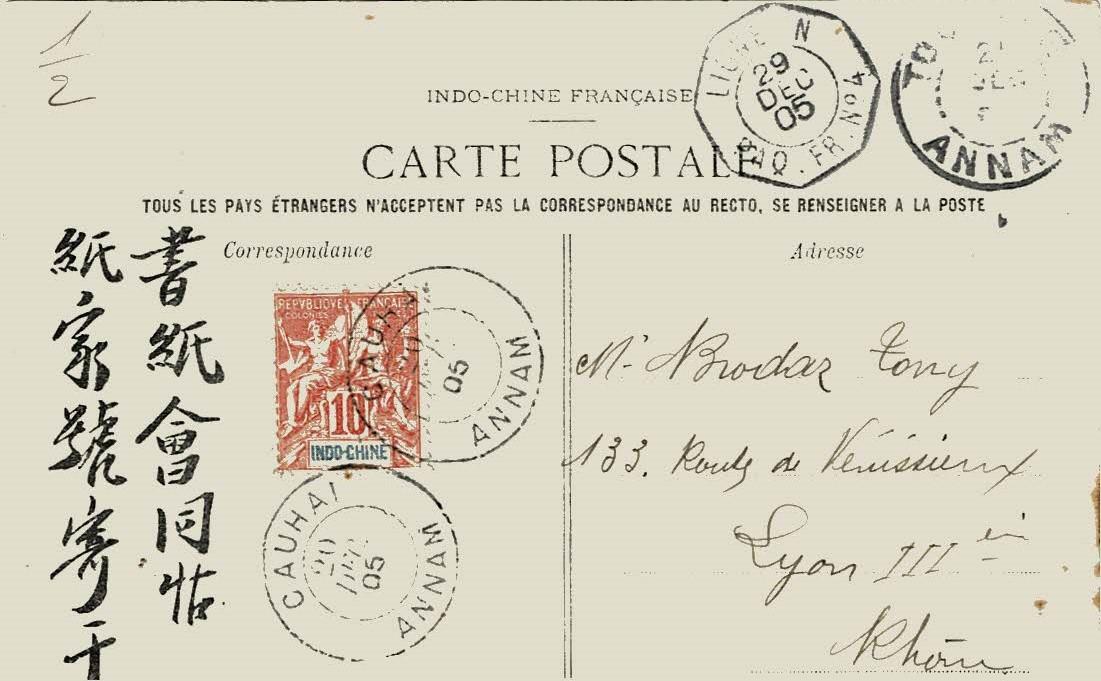 1/2
INDO-CHINE FRANÇAISE
CARTE POSTALE
TOUS LES PAYS ÉTRANGERS N'ACCEPTENT PAS LA CORRESPONDANCE AU RECTO, SE RENSEIGNER A LA POSTE
LIGNE N
PAQ. FR. Nº4
29
DEC
05
ANNAM
Correspondance
Adresse
書紙會同帖
紙家號寄干
REPVBLIQVE FRANÇAISE
COLONIES
10
INDO-CHINE
CAUHAI
20
05
ANNAM
CAUHAI
20
05
ANNAM
Mr Brodaz Tony
133. Route de Vénissieux
Lyon III
Rhône